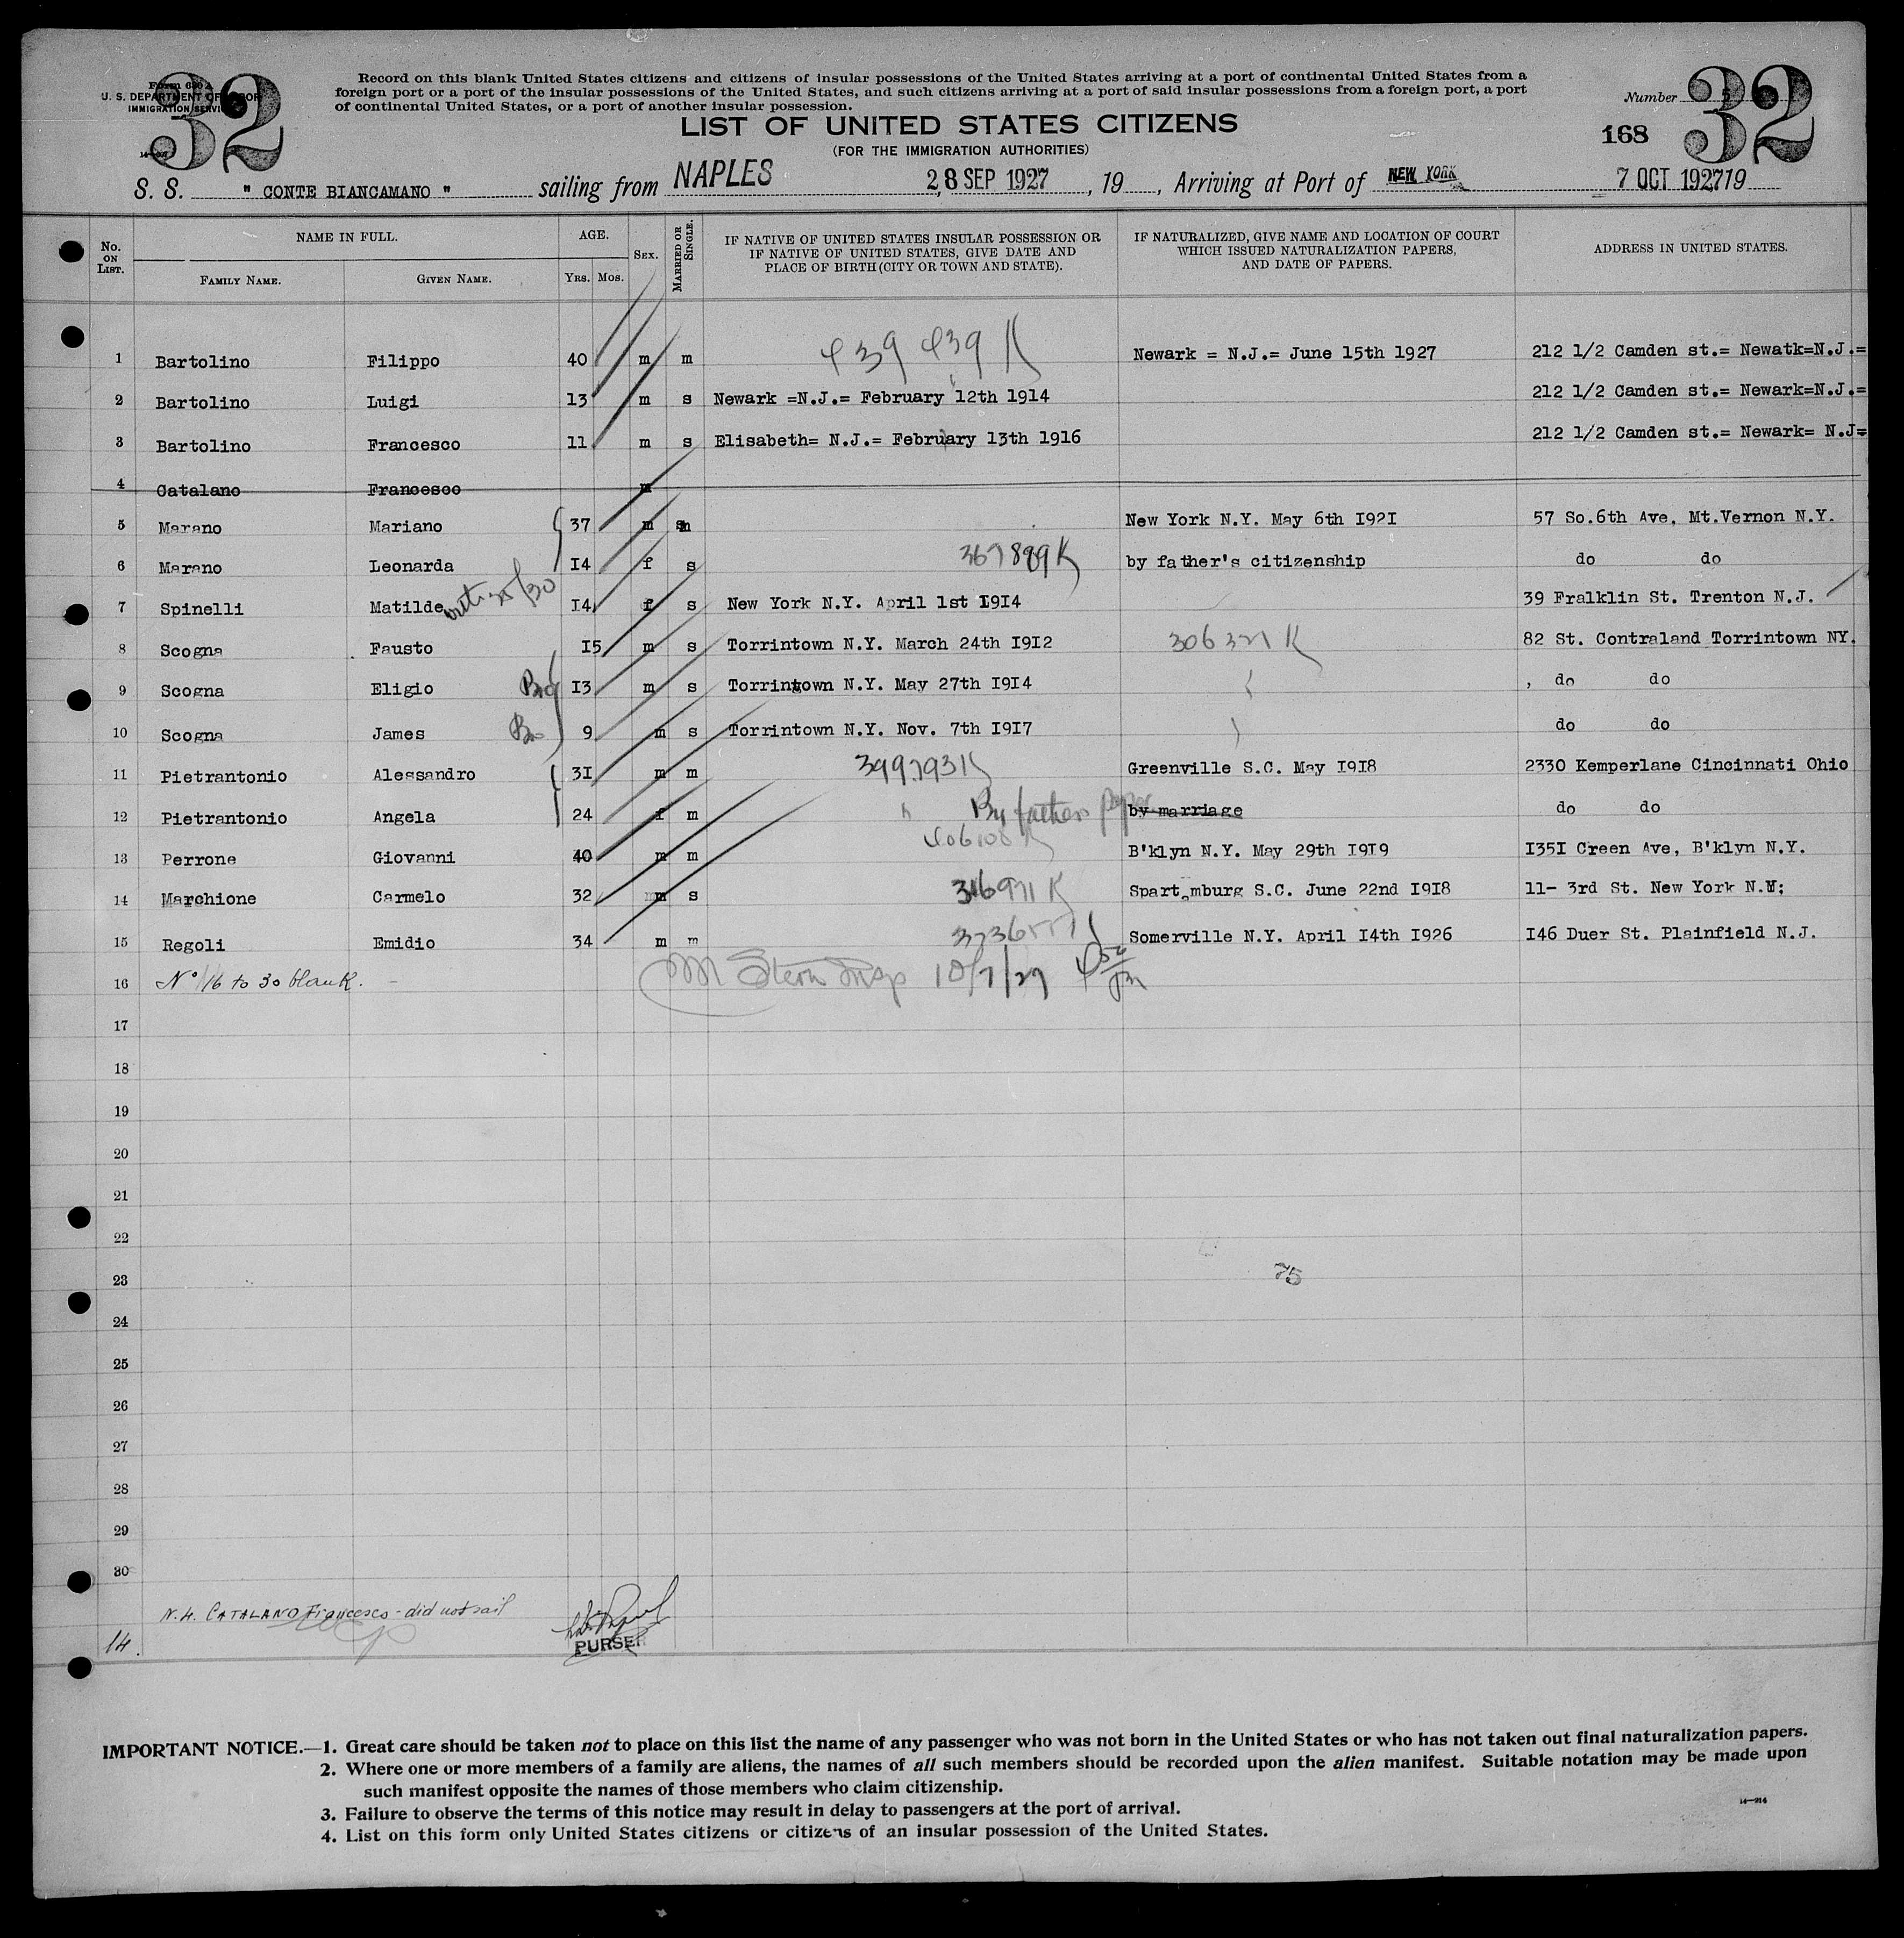 32
Form 630 A
U. S. DEPARTMENT OF LABOR
IMMIGRATION SERVICE
Record on this blank United States citizens and citizens of insular possessions of the United States arriving at a port of continental United States from a
foreign port or a port of the insular possessions of the United States, and such citizens arriving at a port of said insular possessions from a foreign port, a port
of continental United States, or a port of another insular possession.
Number 5
32
168
LIST OF UNITED STATES CITIZENS
(FOR THE IMMIGRATION AUTHORITIES)
S. S. " CONTE BIANCAMANO " sailing from NAPLES 28 SEP 1927, 19 , Arriving at Port of NEW YORK 7 OCT 192719
No. ON LIST. NAME IN FULL. AGE. SEX. MARRIED OR SINGLE. IF NATIVE OF UNITED STATES INSULAR POSSESSION OR IF NATIVE OF UNITED STATES, GIVE DATE AND PLACE OF BIRTH (CITY OR TOWN AND STATE). IF NATURALIZED, GIVE NAME AND LOCATION OF COURT WHICH ISSUED NATURALIZATION PAPERS, AND DATE OF PAPERS. ADDRESS IN UNITED STATES.
FAMILY NAME. GIVEN NAME. YRS. MOS.
1 Bartolino Filippo 40 m m 439439 K Newark = N.J.= June 15th 1927 212 1/2 Camden st.= Newatk=N.J.=
2 Bartolino Luigi 13 m s Newark =N.J.= February 12th 1914 212 1/2 Camden st.= Newark=N.J.=
3 Bartolino Francesco 11 m s Elisabeth= N.J.= February 13th 1916 212 1/2 Camden st.= Newark= N.J=
4 Catalano Francesco m
5 Marano Mariano 37 m m New York N.Y. May 6th I92I 57 So.6th Ave, Mt.Vernon N.Y.
6 Marano Leonarda I4 f s 367889 K by father's citizenship do do
7 Spinelli Matilde I4 f s New York N.Y. April 1st I9I4 39 Fralklin St. Trenton N.J.
8 Scogna Fausto I5 m s Torrintown N.Y. March 24th I9I2 306321 K 82 St. Contraland Torrintown NY.
9 Scogna Eligio Bro I3 m s Torringown N.Y. May 27th I9I4 , do do
10 Scogna James Bro 9 m s Torrintown N.Y. Nov. 7th I9I7 do do
11 Pietrantonio Alessandro 3I m m 399793 K Greenville S.C. May I9I8 2330 Kemperlane Cincinnati Ohio
12 Pietrantonio Angela 24 f m " By fathers paper by marriage do do
13 Perrone Giovanni 40 m m 406108 K B'klyn N.Y. May 29th I9I9 I35I Creen Ave, B'klyn N.Y.
14 Marchione Carmelo 32 m s 316971 K Spartamburg S.C. June 22nd I9I8 11- 3rd St. New York N.Y;
15 Regoli Emidio 34 m m Somerville N.Y. April I4th I926 I46 Duer St. Plainfield N.J.
16 No 16 to 30 blank. M Stern Insp 10/7/27
17
18
19
20
21
22
23
75
24
25
26
27
28
29
30
N.4. CATALANO Francesco - did not sail
14.
PURSER
IMPORTANT NOTICE.—1. Great care should be taken not to place on this list the name of any passenger who was not born in the United States or who has not taken out final naturalization papers.
2. Where one or more members of a family are aliens, the names of all such members should be recorded upon the alien manifest. Suitable notation may be made upon
such manifest opposite the names of those members who claim citizenship.
3. Failure to observe the terms of this notice may result in delay to passengers at the port of arrival.
4. List on this form only United States citizens or citizens of an insular possession of the United States.